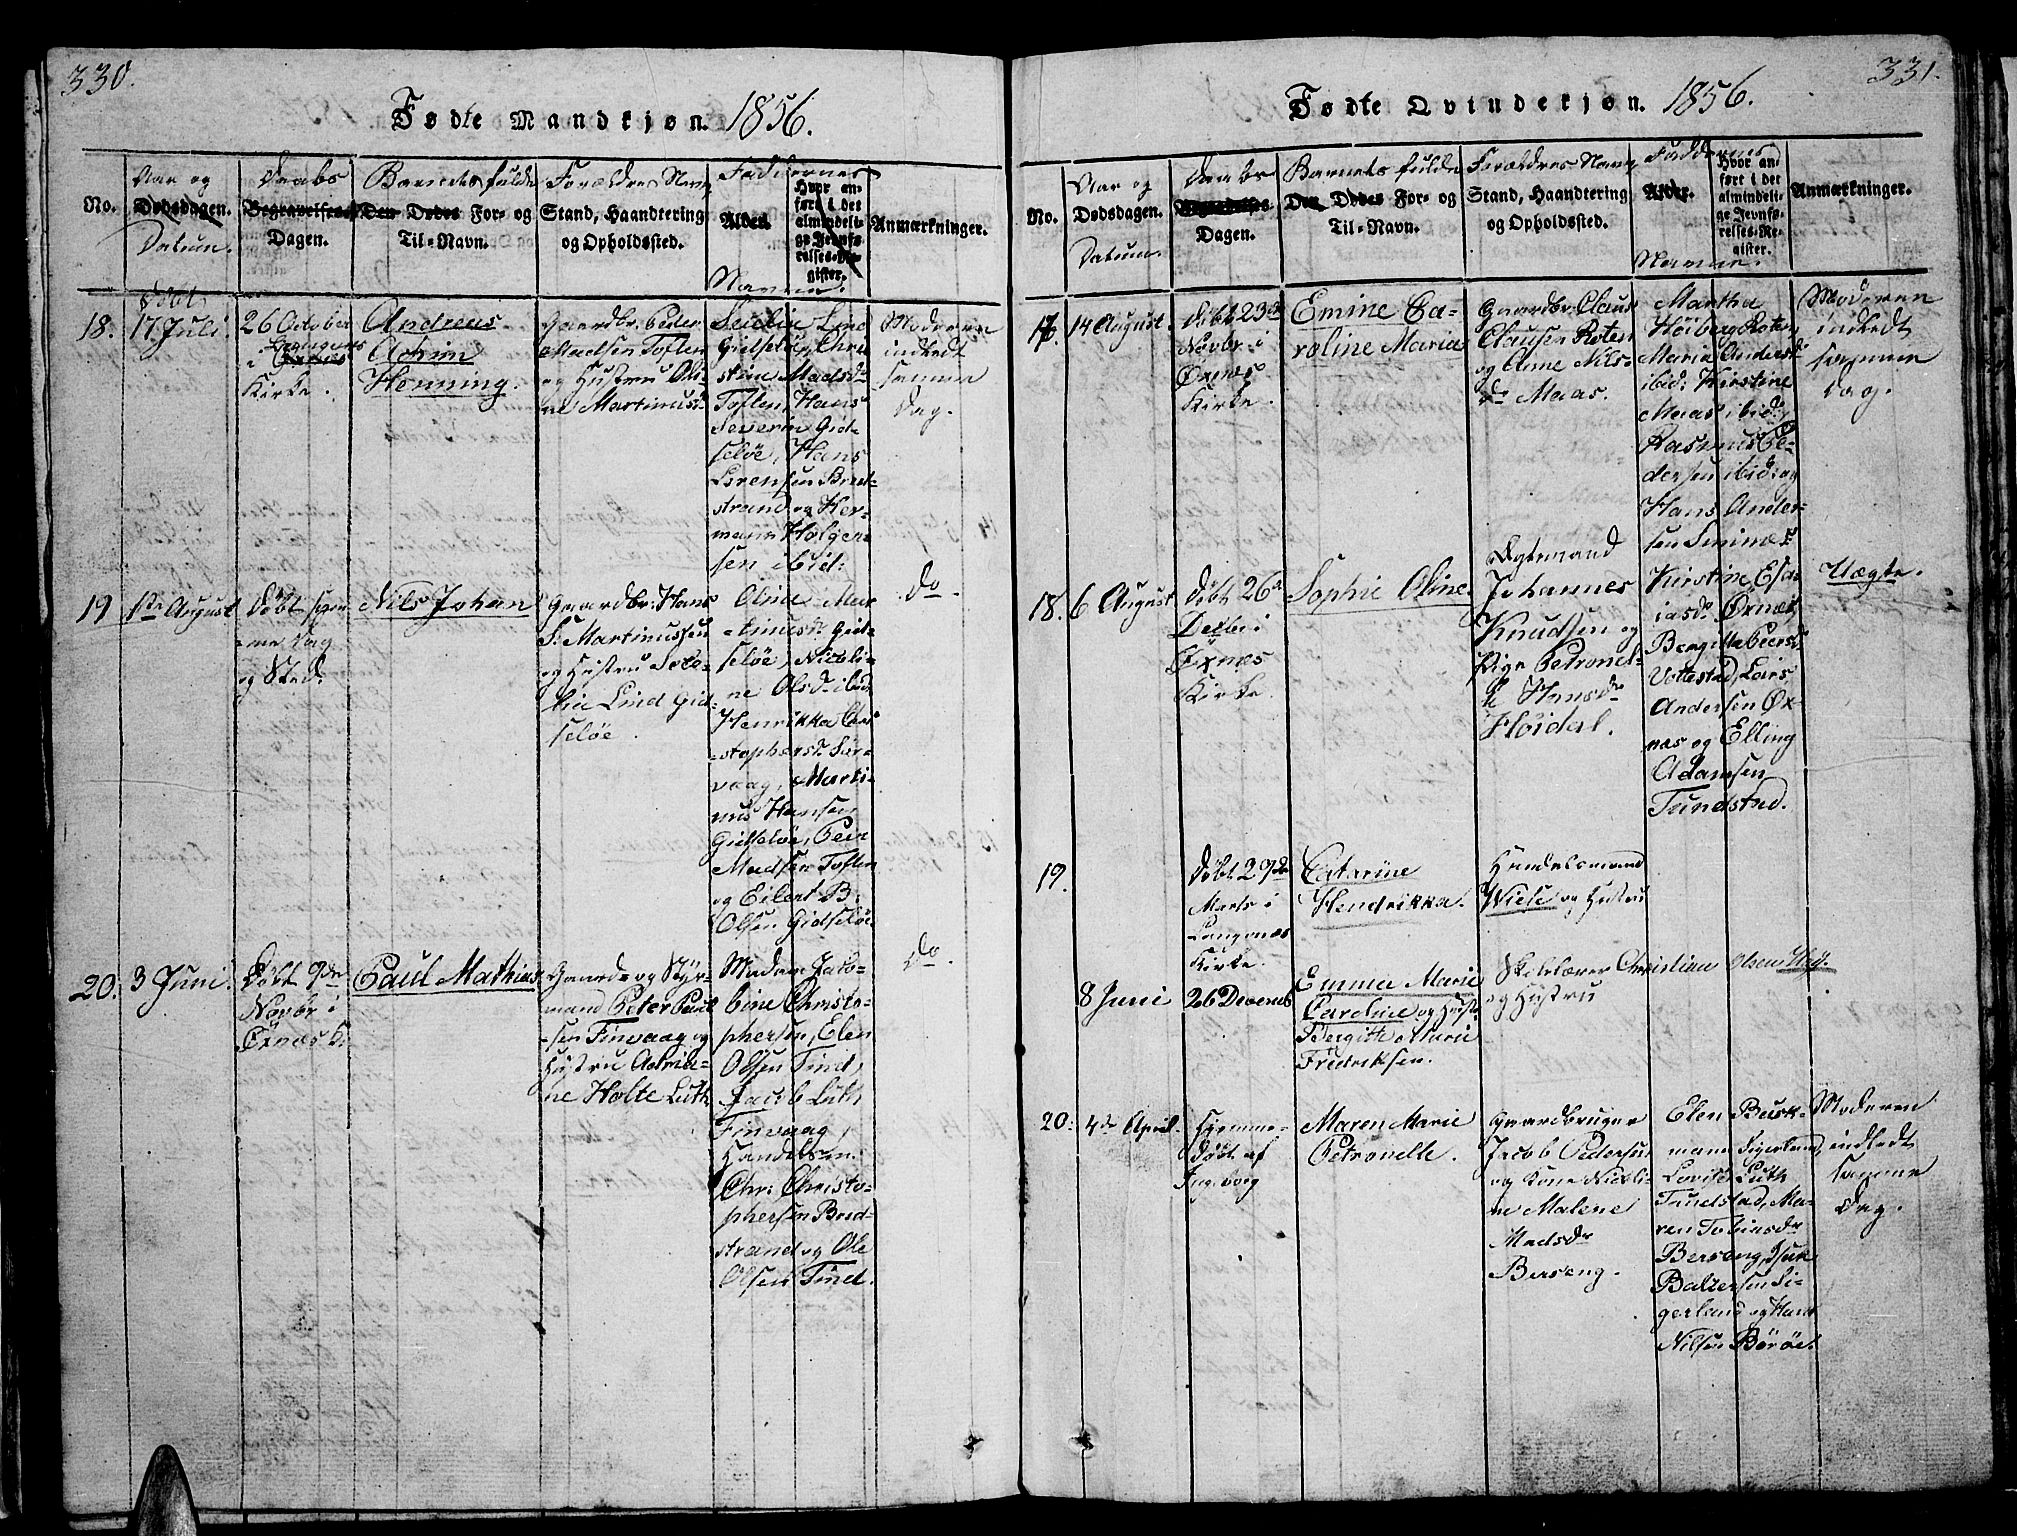 330.
Fødte Mandkjøn. 1856.
No.
Aar og
Dødsdagen.
Datum.
Daabs
Begravelses-
Dagen.
Barnets fulde
Den Dødes For- og
Til-Navn.
Forældres Navn
Stand, Haandtering
og Opholdssted.
Faddernes
Alder.
Navne.
Hvor an-
ført i det
almindeli-
ge Jevnfø-
relses-Re-
gister.
Anmærkninger.
18.
17 Juli
26 October
i
Kirke.
Andreas
Achim
Henning.
Gaardbr. Peder
Madsen Toften
og Hustru Oli-
ne Martinusd.
Lind
Gidseløe, Chri
stine Madsdr
Toften, Hans
Severin Gid-
seløe, Hans
Lorensen Bred-
strand og Her-
mann Holger-
sen ibid:
Moderen
indledt
samme
Dag.
19
1ste August
Døbt sam-
me Dag
og Sted.
Nils Johan
Gaardbr: Hans
S. Martinussen
og Hustru Sere-
Lind Gid-
seløe.
Olina Mar
tinusd. Gid-
seløe, Nicoli-
ne Olsd. ibid,
Henrikka Chri
stophersd. Sør-
vaag, Marti-
nus Hansen
Gidseløe, Peer
Madsen Toften
og Eilert B:
Olsen Gidseløe.
Do.
20.
3 Juni.
Døbt 9de
Novbr i
Øxnes K.
Paul Mathias
Gaard- og Styr-
mand Peter Paul
sen Finvaag og
Hustru Adria-
ne Holte Luth
Madam Jako-
bine Christo-
phersen, Elen
Olsen Tind,
Jacob Luth
Finvaag,
Handelsm.
Chr: Christo-
phersen Bred-
strand og Ole
Olsen Tind.
Do.
331.
Fødte Qvindekjøn. 1856.
No.
Aar og
Dødsdagen.
Datum.
Daabs
Begravelses-
Dagen.
Barnets fulde
Den Dødes For- og
Til-Navn.
Forældres Navn
Stand, Haandtering
og Opholdssted.
Faddernes
Alder.
Navne.
Hvor an-
ført i det
almindeli-
ge Jevnfø-
relses-Re-
gister.
Anmærkninger.
17.
14 August.
Døbt 23de
Novbr. i
Øxnes
Kirke.
Emine Ca-
roline Maria
Gaardbr. Claus
Clausen Roten
og Ane Nils-
dr Maas.
Martha
Høiberg Roten,
Maria Andersd.
ibid: Kirstine
Maas ibid,
Rasmus Pe-
dersen ibid: og
Hans Ander-
sen
Moderen
indledt
samme
Dag.
18.
6 August
Døbt 26de
Decbr i
Øxnes
Kirke.
Sophie Oline.
Egtemand
Johannes
Knudsen og
Pige Petronel-
le Hansdr
Høidal.
Kirstine Esa-
iasd. Øxnes,
Bergitta Peersd.
Vottestad, Lars
Andersen Øx-
nes og Elling
Adamsen
Tundstad.
Uægte.
19.
Døbt 29de
Marts i
Langenæs
Kirke.
Catarine
Hendrikka.
Handelsmand
Wiese og Hustru
8 Juni
26 Decemb
Emma Marie
Caroline og Hust.
Bergitte Marie
Fredriksen.
Skolelærer Christian Olsen
og Hustru
20.
4de April.
Hjemme-
døbt af
Ingeborg
Maren Marie
Petronelle.
Gaardbruger
Jacob Pedersen
og Kone Nicoli-
ne Malene
Madsdr
Berseng.
Elen Busk-
mann Sigerland,
Lovise Luth
Tundstad, Ma-
ren Tobiasdr
Berseng, Isak
Baltzersen Si-
gerland og Hans
Nilsen Børøe.
Moderen
indledt
samme
Dag.